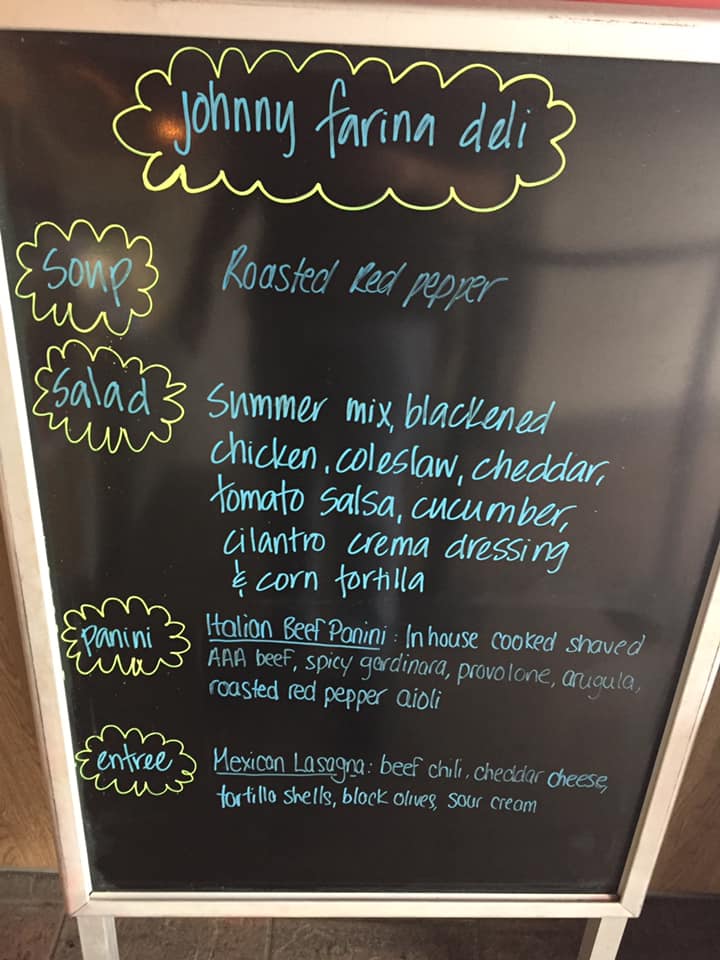 johnny farina deli
Soup
Roasted Red pepper
Salad
Summer mix, blackened
chicken, coleslaw, cheddar,
tomato salsa, cucumber,
cilantro crema dressing
& corn tortilla
panini
Italian Beef Panini: In house cooked shaved
AAA beef, spicy gardinara, provolone, arugula,
roasted red pepper aioli
entree
Mexican Lasagna: beef chili, cheddar cheese,
tortilla shells, black olives, sour cream